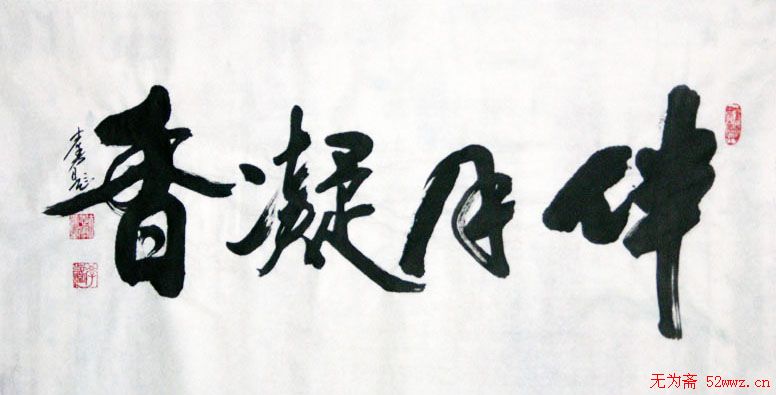 伴月凝香
无为斋 52wwz.cn